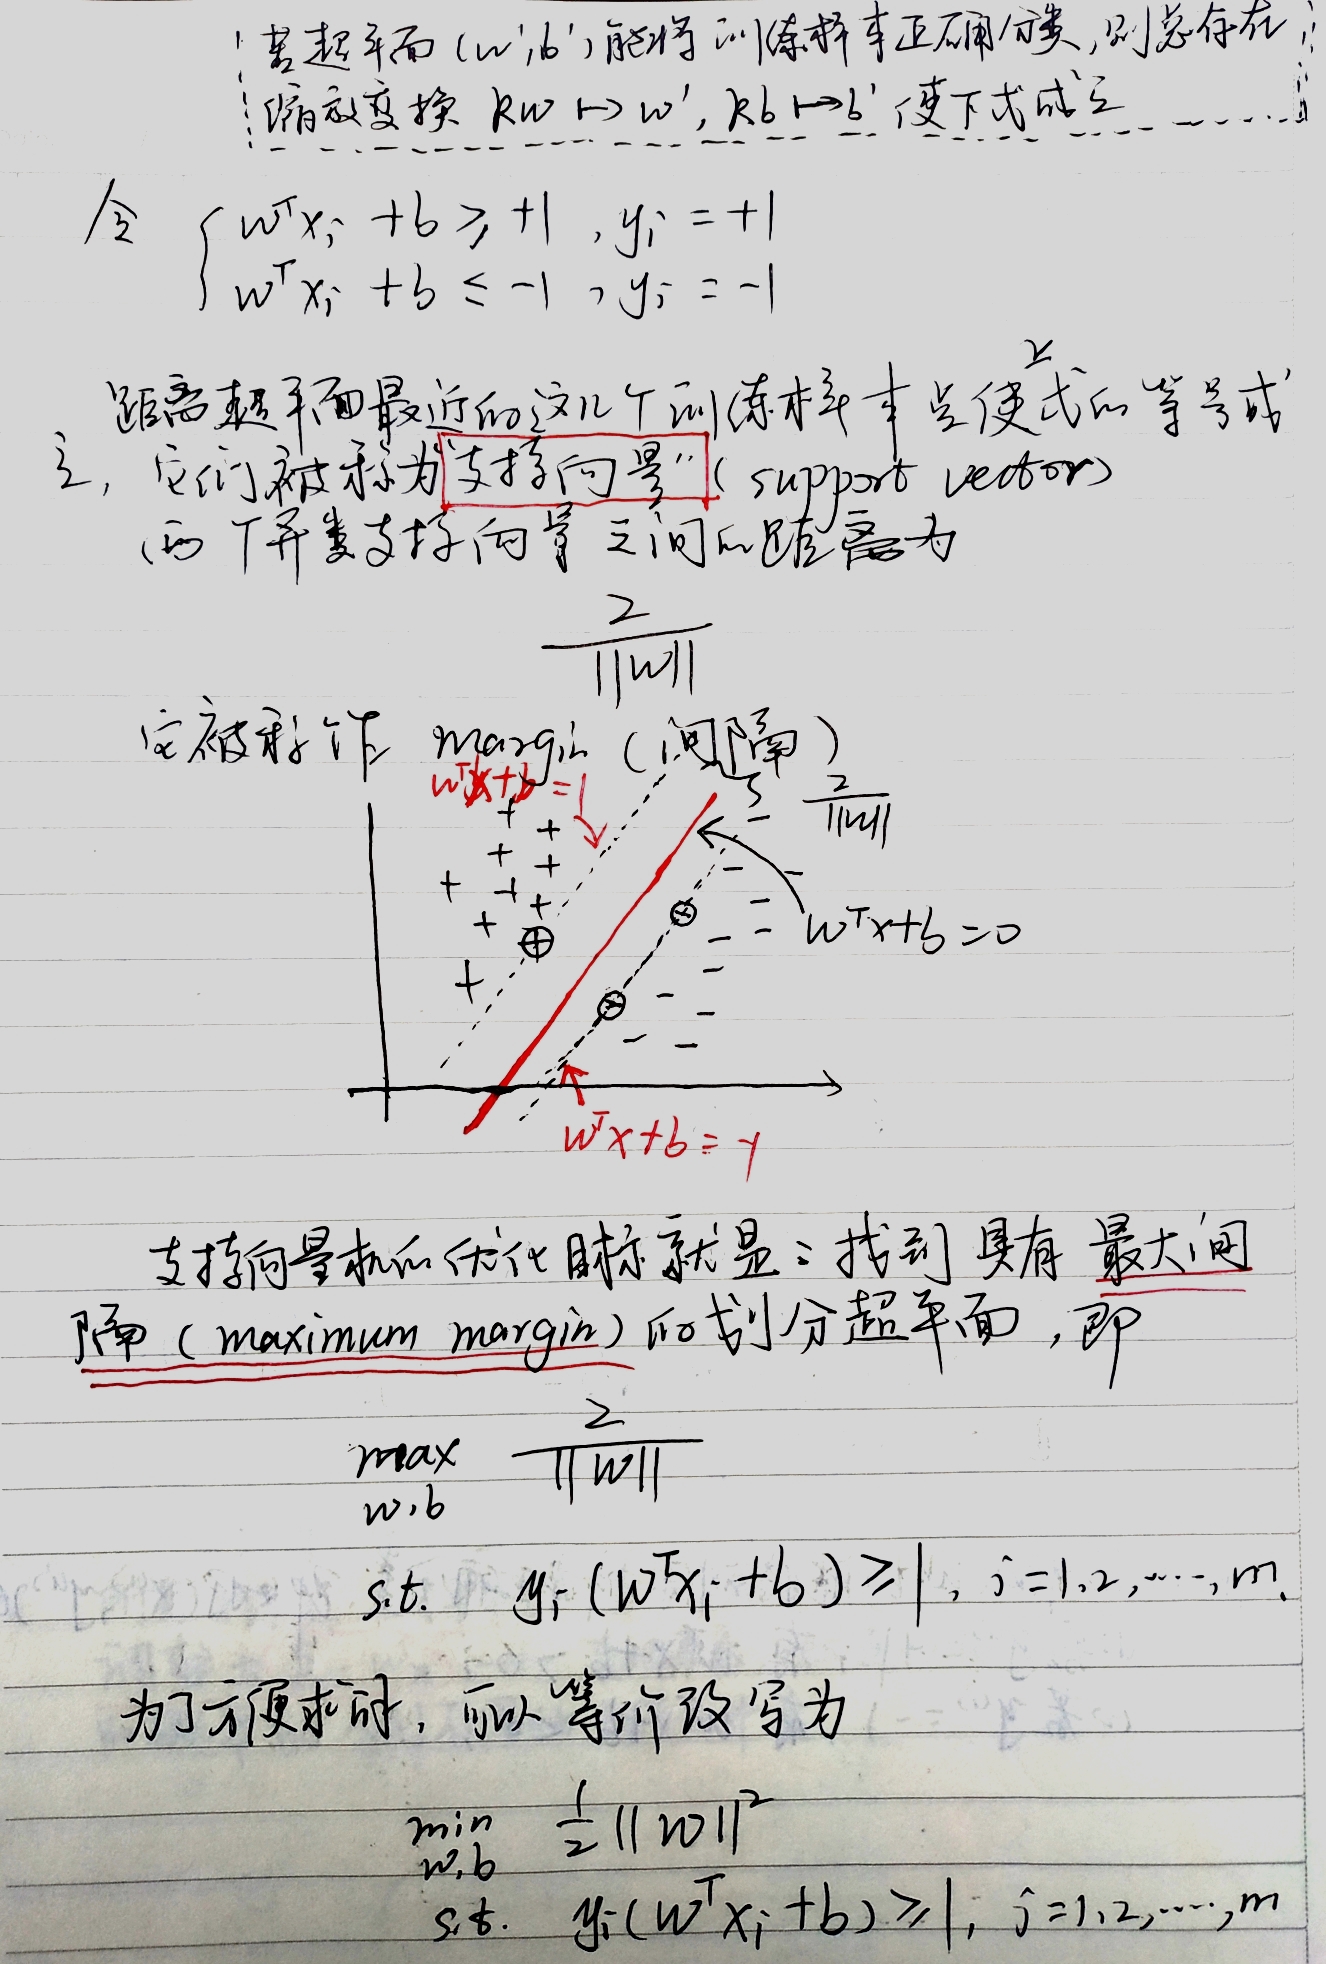 若超平面(w',b')能将训练样本正确分类,则总存在
缩放变换 kw ↦ w', kb ↦ b' 使下式成立
令 { wᵀxᵢ + b ≥ +1 , yᵢ = +1
wᵀxᵢ + b ≤ -1 , yᵢ = -1
距离超平面最近的这几个训练样本点使上式的等号成
立, 它们被称为"支持向量"(support vector)
两个异类支持向量之间的距离为
2/||w||
它被称作 margin (间隔)
wᵀx+b=1
2/||w||
wᵀx+b=0
wᵀx+b=-1
支持向量机的优化目标就是: 找到具有最大间
隔 (maximum margin) 的划分超平面, 即
max 2/||w||
w,b
s.t. yᵢ(wᵀxᵢ+b) ≥ 1, i=1,2,……,m.
为了方便求解, 可以等价改写为
min ½||w||²
w,b
s.t. yᵢ(wᵀxᵢ+b) ≥ 1, i=1,2,……,m